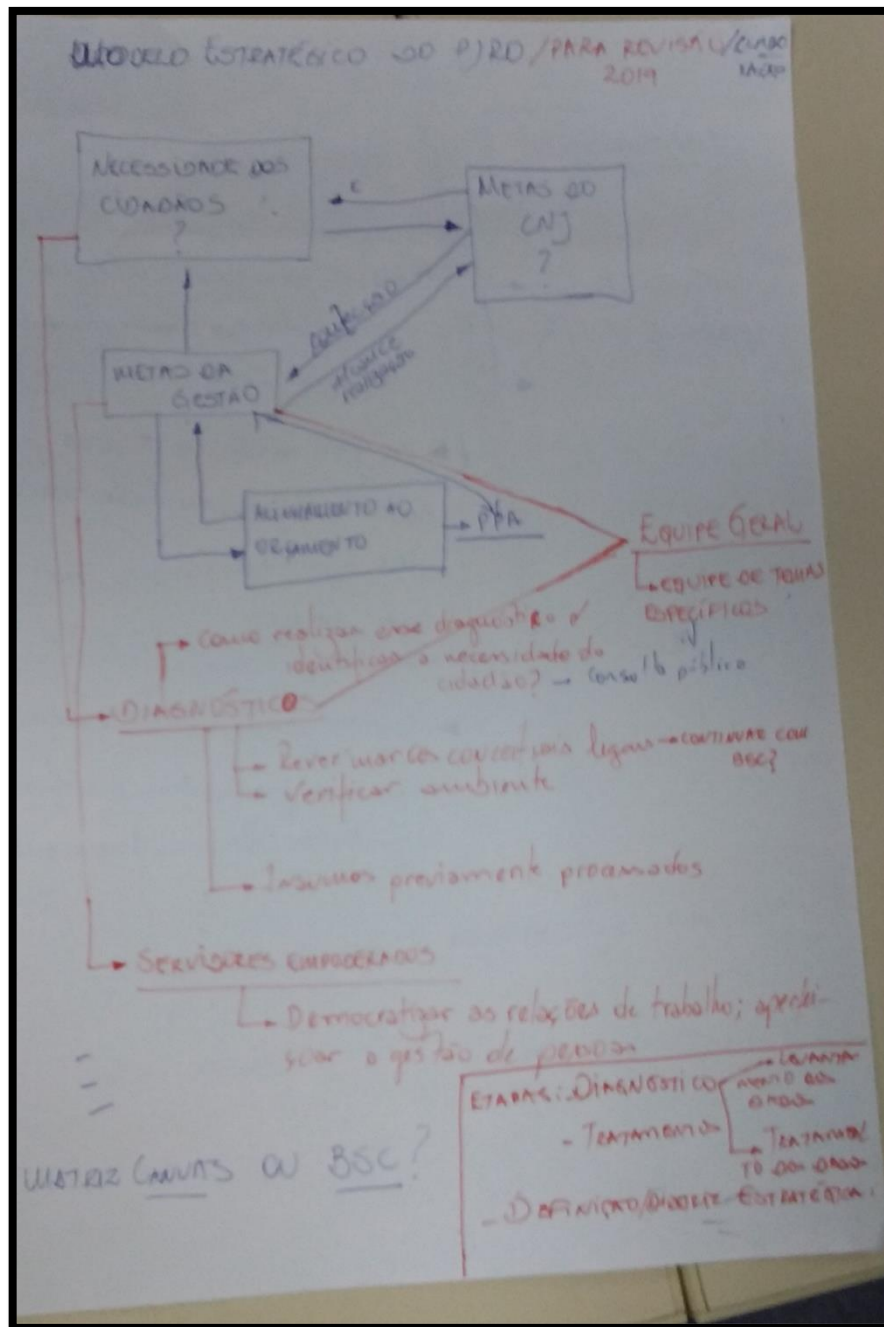 MODELO ESTRATÉGICO DO PJRO/PARA REVISÃO/ELABO
2019 RAÇÃO
NECESSIDADE DOS
CIDADÃOS
?
METAS DO
CNJ
?
METAS DA
GESTÃO
alcance
realização
ALINHAMENTO AO
ORÇAMENTO
PPA
EQUIPE GERAL
EQUIPE DE TEMAS
ESPECÍFICOS
Como realizar esse diagnóstico p/
identificar a necessidade do
cidadão? → consulta pública
DIAGNÓSTICO
Rever marcos conceituais legais → CONTINUAR COM
BSC?
Verificar ambiente
Insumos previamente processados
SERVIDORES EMPODERADOS
Democratizar as relações de trabalho; aperfei-
çoar a gestão de pessoas
ETAPAS: DIAGNÓSTICO
LEVANTA
MENTO DOS
DADOS
- TRATAMENTO
TRATAMEN
TO DOS DADOS
- DEFINIÇÃO/DIRETRIZ ESTRATÉGICA
MATRIZ CANVAS OU BSC?